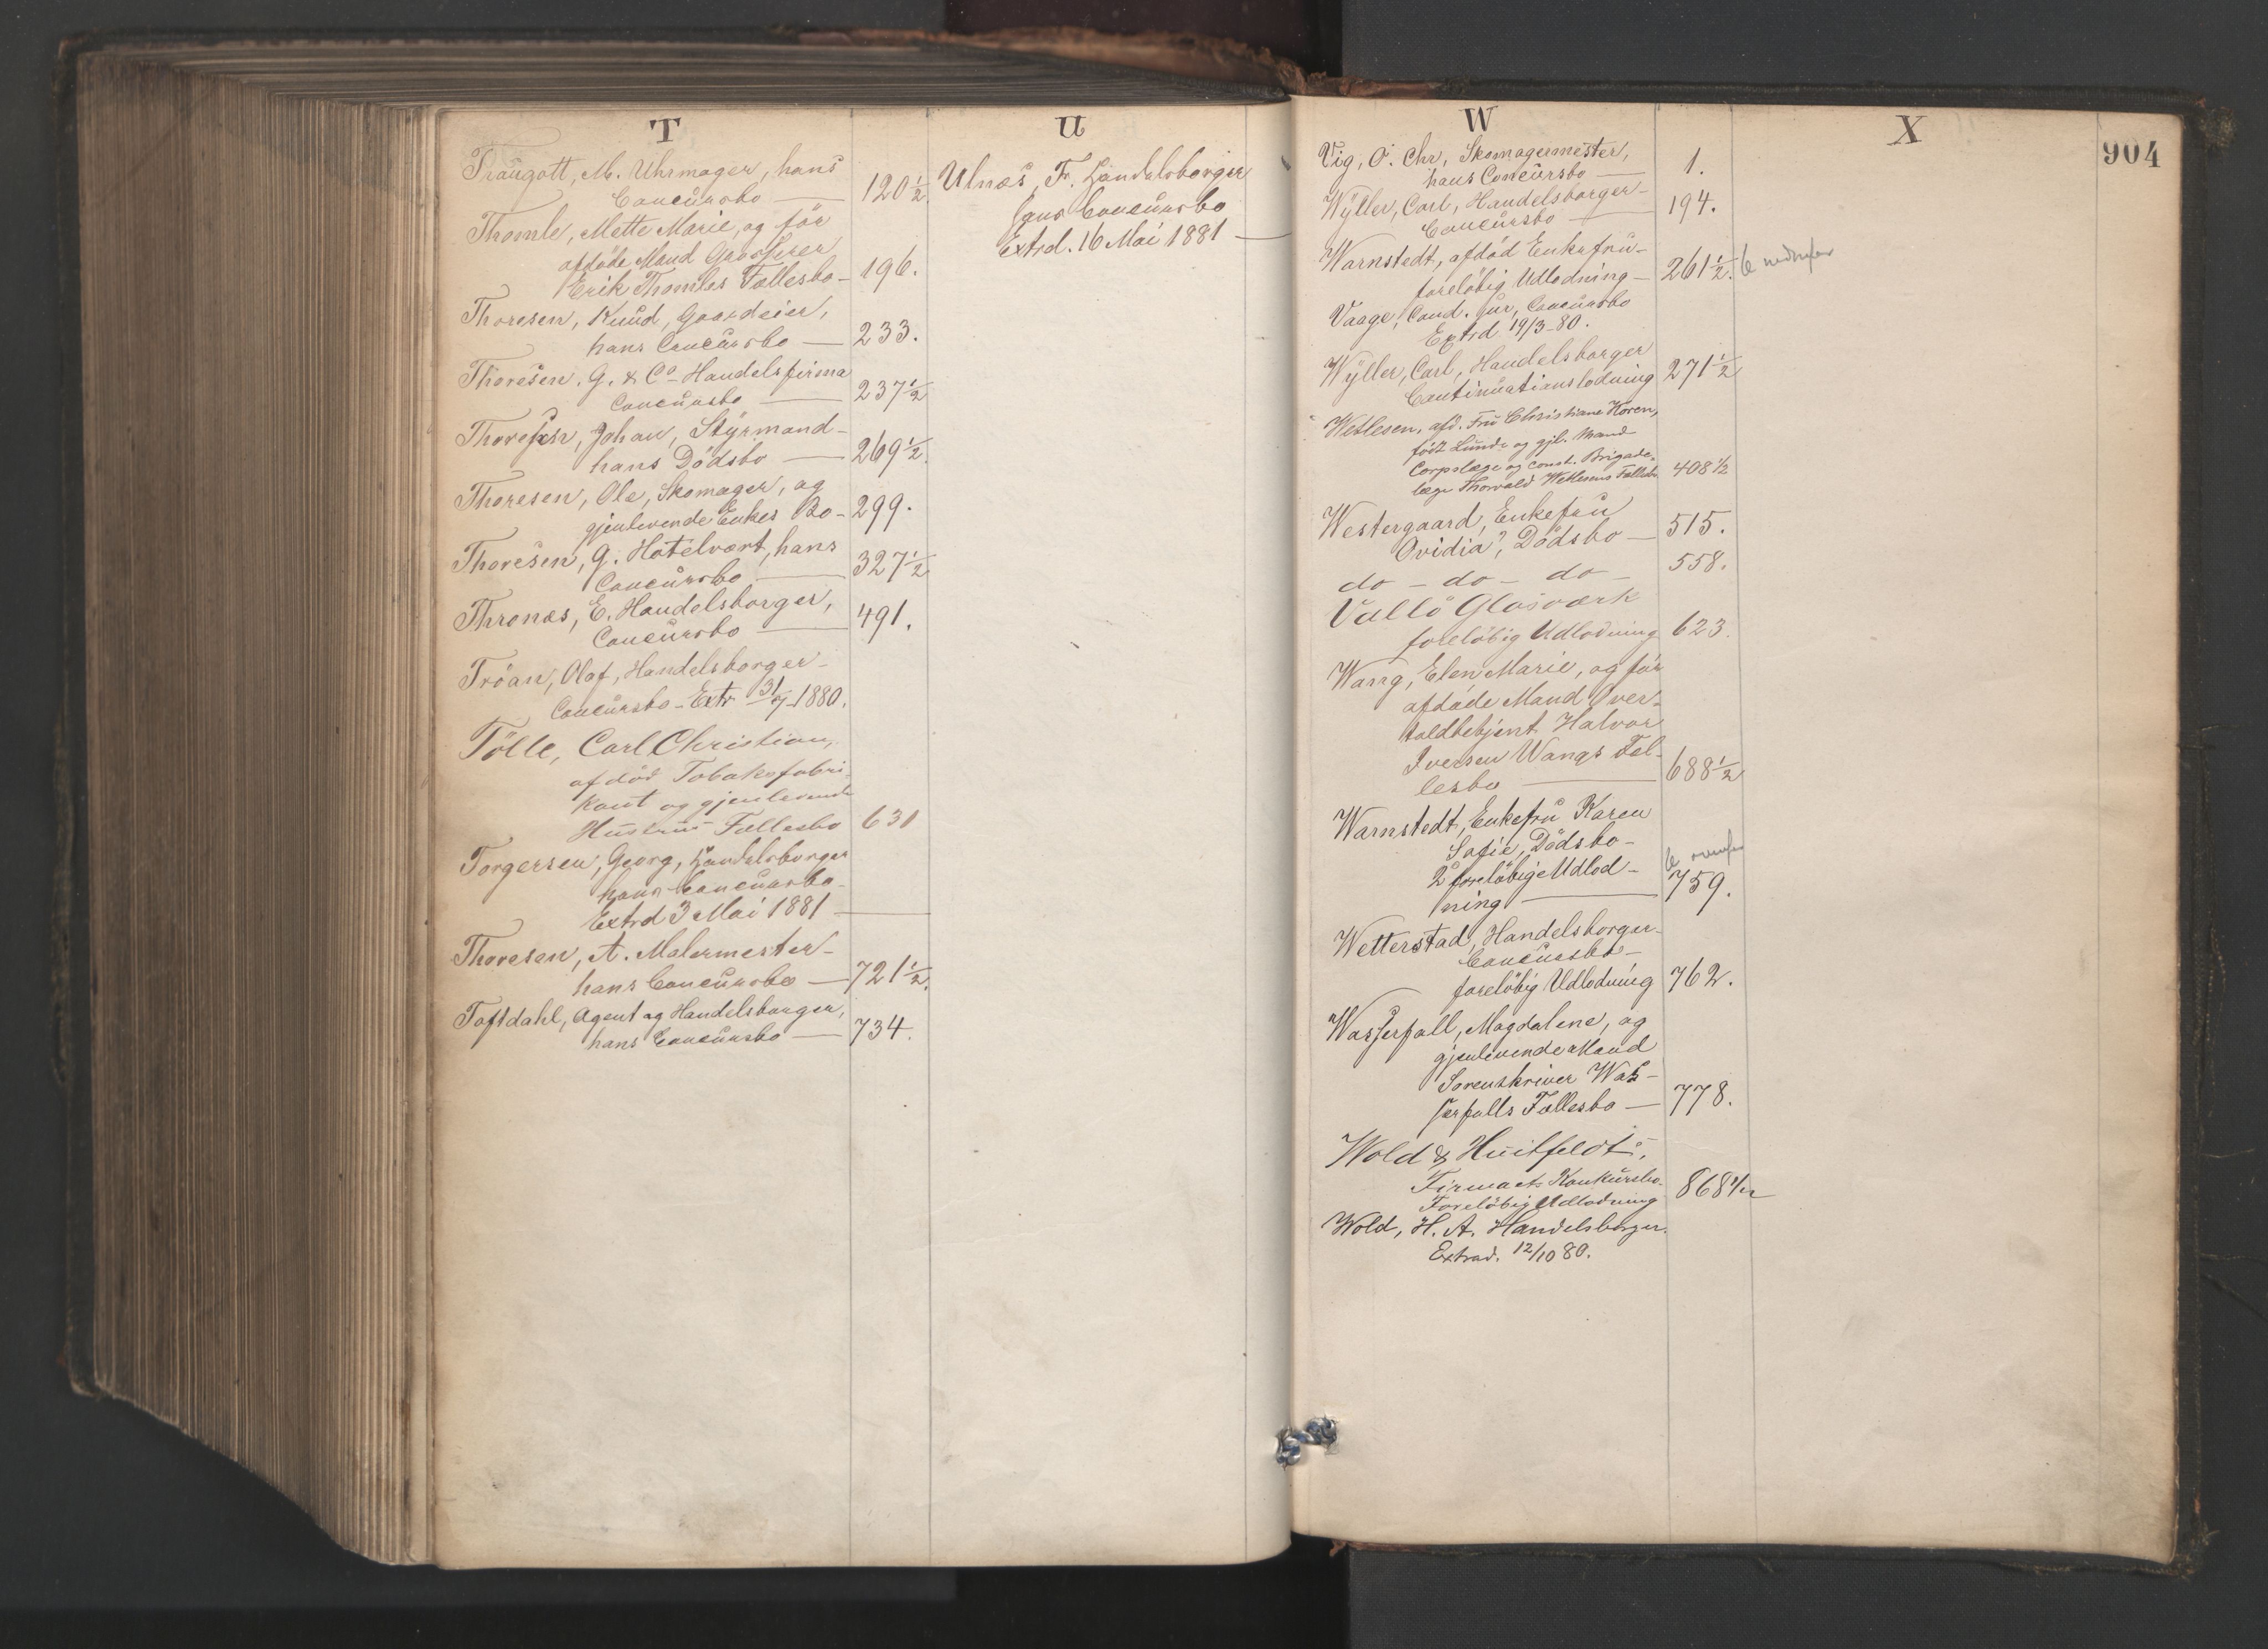 T
Traugott, M. Uhrmager, hans
Concursbo — 120 ½.
Thomle, Mette Marie, og før
afdøde Mand Grosserer
Erik Thomles Fællesbo — 196.
Thoresen, Knud, Gaardeier,
hans Concursbo — 233.
Thoresen. G. & Co Handelsfirma
Concursbo — 237 ½
Thoresen, Johan, Styrmand-
hans Dødsbo — 269 ½.
Thoresen, Ole, Skomager, og
gjenlevende Enkes Bo - 299.
Thoresen, G. Hotelvært, hans
Concursbo — 327 ½
Thrones, E. Handelsborger,
Concursbo — 491.
Tröan, Olaf, Handelsborger-
Concursbo - Extr 31/7-1880.
Tölle, Carl Christian,
afdød Tobaksfabri-
kant og gjenlevende
Hustrus Fællesbo 631
Torgersen, Georg, Handelsborger
hans Concursbo-
Extrd 3 Mai 1881 —
Thoresen, A. Malermester-
hans Concursbo — 721 ½.
Toftdahl, Agent og Handelsborger,
hans Concursbo — 734.
U
Ulnæs, Fr. Handelsborger
hans Concursbo
Extrd. 16 Mai 1881 —
W
Vig, O. Chr, Skomagermester,
hans Concursbo — 1.
Wÿller, Carl, Handelsborger-
Concursbo — 194.
Warnstedt, afdød Enkefru-
foreløbig Udlodning — 261 ½. nedenfor
Vaage, Cand. jur, Concursbo
Extrd 19/3-80.
Wÿller, Carl, Handelsborger
Continuationslodning 271 ½
Wetlesen, afd. Fru Christiane Koren,
født Lund og gjl. Mand
Corpslæge og const. Brigade-
læge Thorvald Wetlesens Fællesbo 408 ½
Westergaard, Enkefru
Ovidia?, Dødsbo — 515.
do - do - do - 558.
Vallö Glasværk
foreløbig Udlodning 623.
Wang, Elen Marie, og før
afdøde Mand Over-
toldbetjent Halvor
Iversen Wangs Fæl-
lesbo — 688 ½
Warnstedt, Enkefru Karen
Sofie, Dødsbo-
2 foreløbige Udlod-
ning — 759.
Wetterstad, Handelsborger-
Concursbo-
foreløbig Udlodning 762.
Wasserfall, Magdalene, og
gjenlevende Mand
Sorenskriver Was-
serfalls Fællesbo — 778.
Wold & Huitfeldt,
Firmaets Konkursbo.
Foreløbig Udlodning 868 ½
Wold, H. A. Handelsborger.
Extrad. 12/10 80.
X
904